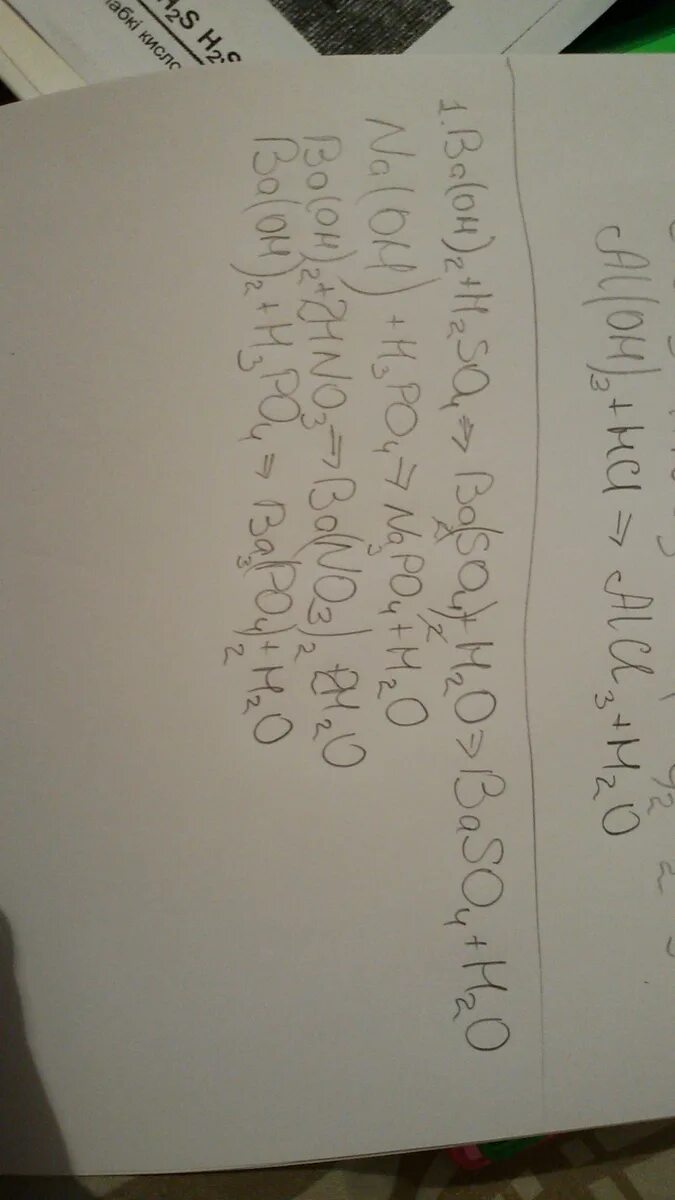 H₂S H₂S
абкі кисло
Al(OH)₃+HCl⇒AlCl₃+H₂O
1.Ba(OH)₂+H₂SO₄⇒Ba₂(SO₄)₂+H₂O⇒BaSO₄+H₂O
Na(OH)+H₃PO₄⇒Na₃PO₄+H₂O
Ba(OH)₂+2HNO₃⇒Ba(NO₃)₂+2H₂O
Ba(OH)₂+H₃PO₄⇒Ba₃(PO₄)₂+H₂O